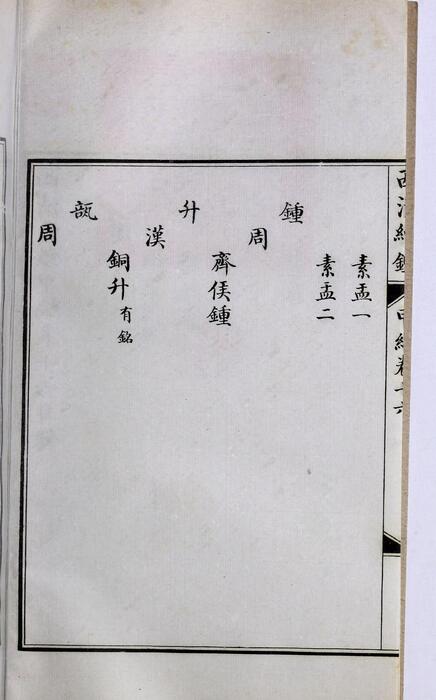 西清續鑑 甲編卷十六
素盂一
素盂二
鍾
周
齊侯鍾
升
漢
銅升有銘
瓿
周